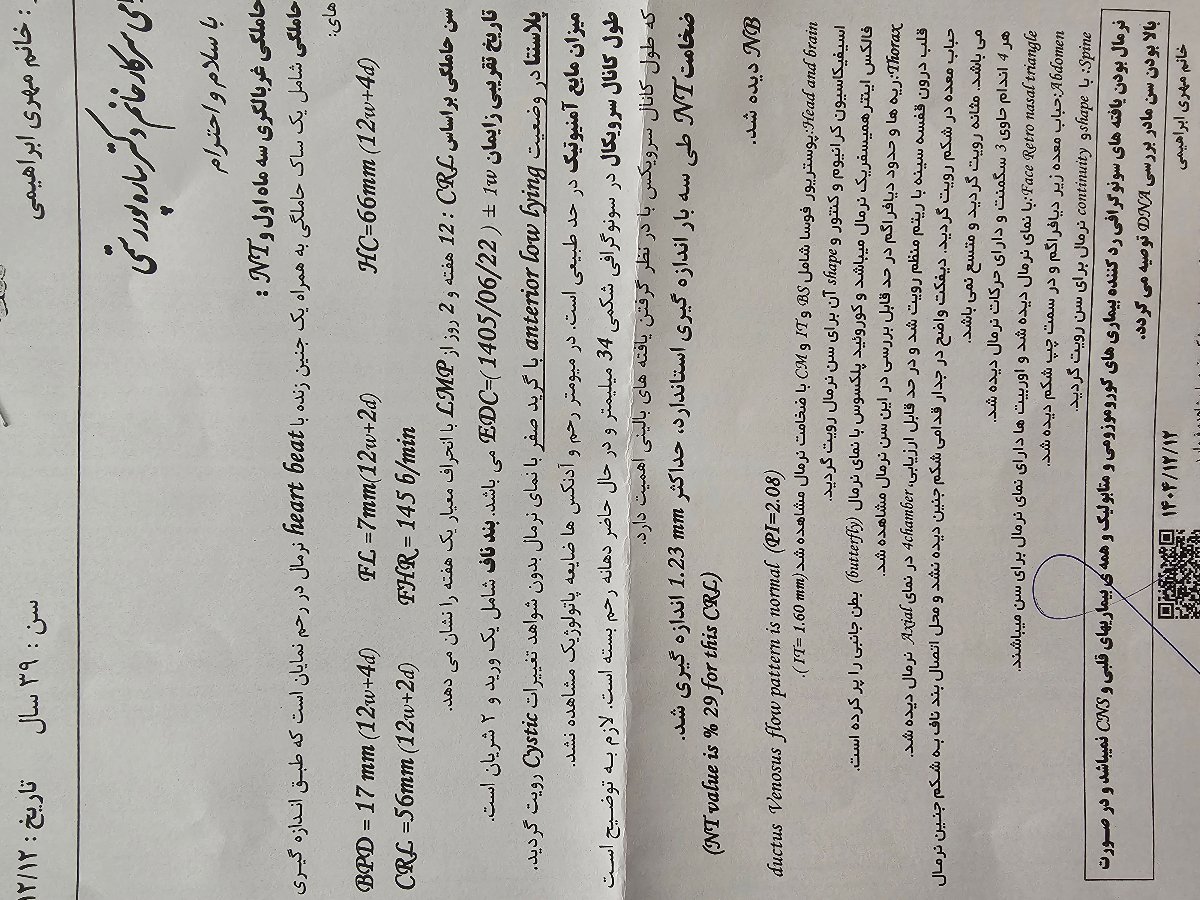 : خانم مهری ابراهیمی
سن : ۳۹ سال
تاریخ : ۱۲/۱۲
سرکار خانم دکتر
با سلام و احترام
حاملگی غربالگری سه ماه اول و NT :
حاملگی شامل یک ساک حاملگی به همراه یک جنین زنده با heart beat نرمال در رحم نمایان است که طبق اندازه گیری
های:
BPD = 17 mm (12w+4d) FL =7mm(12w+2d) HC=66mm (12w+4d)
CRL =56mm (12w+2d) FHR = 145 b/min
سن حاملگی بر اساس CRL : 12 هفته و 2 روز از LMP با انحراف معیار یک هفته را نشان می دهد.
تاریخ تقریبی زایمان EDC=( 1405/06/22 ) ± 1w می باشد. بند ناف شامل یک ورید و ۲ شریان است.
پلاسنتا در وضعیت anterior low lying با گرید صفر با نمای نرمال بدون شواهد تغییرات Cystic رویت گردید.
میزان مایع آمنیوتیک در حد طبیعی است. در میومتر رحم و آدنکس ها ضایعه پاتولوژیک مشاهده نشد.
طول کانال سرویکال در سونوگرافی شکمی 34 میلیمتر و در حال حاضر دهانه رحم بسته است. لازم به توضیح است
که طول کانال سرویکس با در نظر گرفتن یافته های بالینی اهمیت دارد.
ضخامت NT طی سه بار اندازه گیری استاندارد، حداکثر 1.23 mm اندازه گیری شد.
(NT value is % 29 for this CRL)
NB دیده شد.
ductus Venosus flow pattern is normal (PI=2.08)
Head and brain:پوستریور فوسا شامل BS و IT و CM با ضخامت نرمال مشاهده شد (IT= 1.60 mm).
اسیفیکاسیون کرانیوم و کنتور و shape آن برای سن نرمال رویت گردید.
فالکس اینترهمیسفریک نرمال میباشد و کوروئید پلکسوس با نمای نرمال (butterfly) بطن جانبی را پر کرده است.
Thorax:ریه ها و حدود دیافراگم در حد قابل بررسی در این سن نرمال مشاهده شد.
قلب درون قفسه سینه با ریتم منظم رویت شد و در حد قابل ارزیابی،4chamber در نمای Axial نرمال دیده شد.
حباب معده در شکم رویت گردید. دیفکت واضح در جدار قدامی شکم جنین دیده نشد و محل اتصال بند ناف به شکم جنین نرمال
می باشد. مثانه رویت گردید و متسع نمی باشد.
هر 4 اندام حاوی 3 سگمنت و دارای حرکات نرمال دیده شد.
Face Retro nasal triangle:با نمای نرمال دیده شد و اوربیت ها دارای نمای نرمال برای سن میباشند.
Abdomen:حباب معده زیر دیافراگم و در سمت چپ شکم دیده شد.
Spine: با shape و continuity نرمال برای سن رویت گردید.
نرمال بودن یافته های سونوگرافی رد کننده بیماری های کوروموزومی و متابولیک و همه ی بیماریهای قلبی و CNS نمیباشد و در صورت
بالا بودن سن مادر بررسی DNA توصیه می گردد.
خانم مهری ابراهیمی
۱۴۰۴/۱۲/۱۲